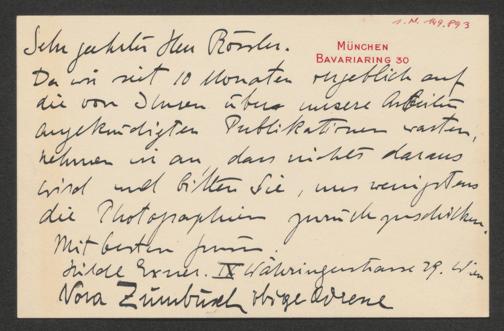 I. N. 149.893
MÜNCHEN
BAVARIARING 30
Sehr geehrter Herr Rössler.
Da wir seit 10 Monaten vergeblich auf
die von Ihnen über unsere Arbeiten
angekündigten Publikationen warten,
nehmen wir an, dass nichts daraus
wird und bitten Sie, uns wenigstens
die Photographien zurückzuschicken.
Mit besten
Hilde Exner. IX Währingerstrasse 29. Wien
Nora Zumbusch obige Adresse